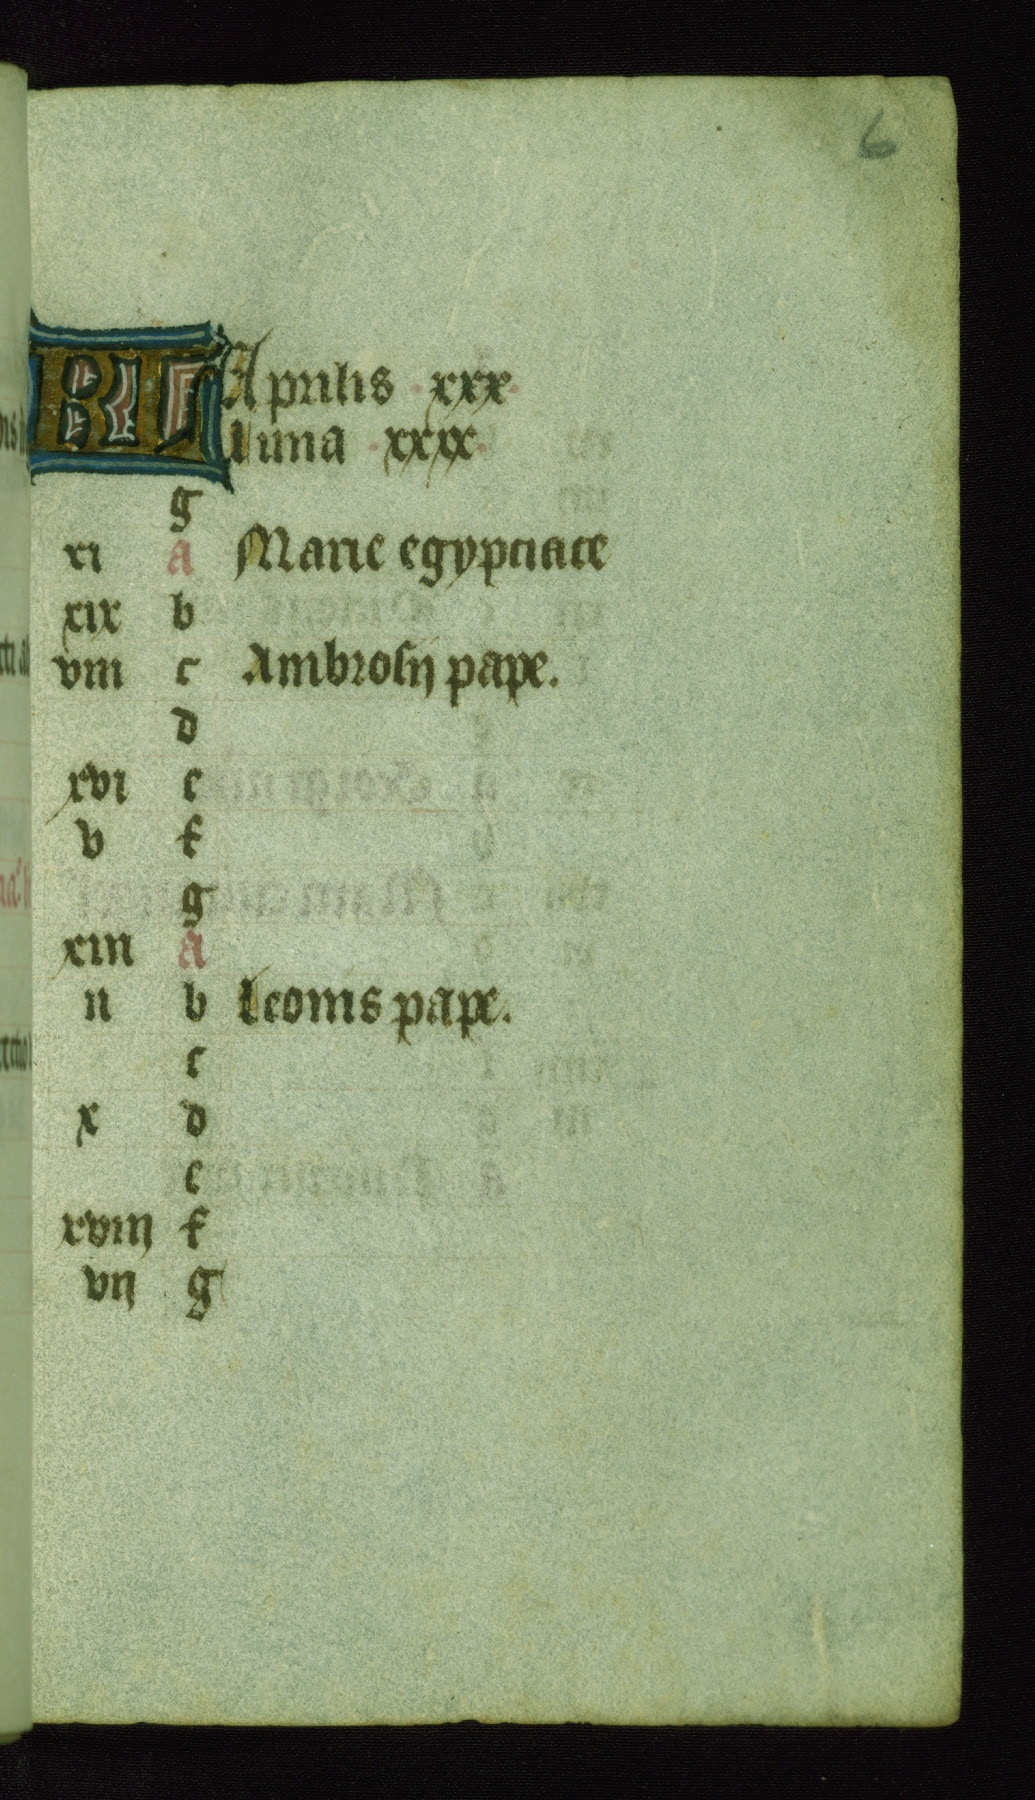 6
KL Aprilis · xxx ·
Luna · xxix ·
g
xi a Marie egypciace
xix b
viii c Ambrosij pape.
d
xvi e
v f
g
xiii a
ii b Leonis pape.
c
x d
e
xviij f
vij g